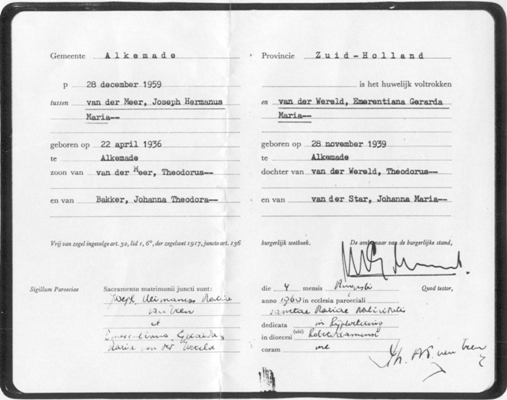 Gemeente Alkemade
Provincie Zuid-Holland
p 28 december 1959
is het huwelijk voltrokken
tussen van der Meer, Joseph Hermanus
Maria--
en van der Wereld, Emerentiana Gerarda
Maria--
geboren op 22 april 1936
te Alkemade
zoon van van der Meer, Theodorus--
en van Bakker, Johanna Theodora--
geboren op 28 november 1939
te Alkemade
dochter van van der Wereld, Theodorus--
en van van der Star, Johanna Maria--
Vrij van zegel ingevolge art. 30, lid 1, 6°, der zegelwet 1917, juncto art. 136
burgerlijk wetboek.
De ambtenaar van de burgerlijke stand,
Sigillum Paroeciae
Sacramentum matrimonii juncti sunt:
Joseph
et
Gerarda
Maria
die 4 mensis Augusti Quod testor,
anno 1960 in ecclesia paroeciali
dedicata in
in dioecesi
coram me